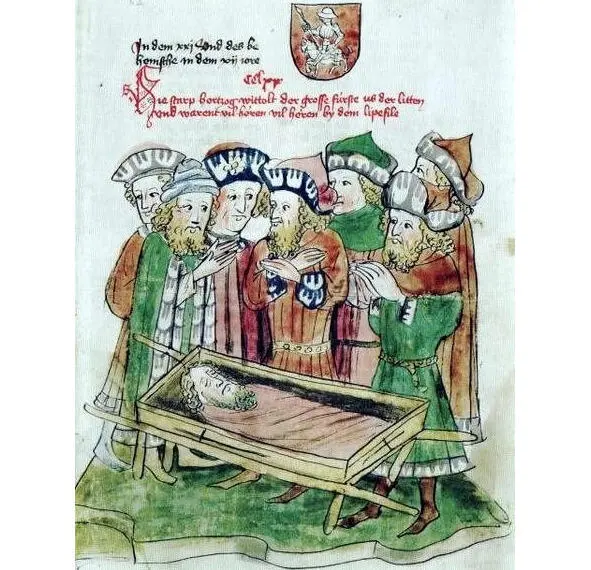 In dem xxj Und des be
hemsche in dem xij iore
CCLxx
Hie starp hertzog wittolt der grosse fürste us der litten
Und warent vil heren vil heren by dem lipefile